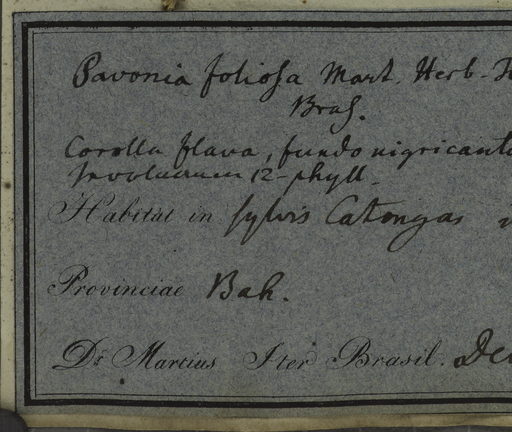 Pavonia foliosa Mart. Herb.
Bras.
Corolla flava, fundo nigricante
Involucrum 12-phyll.
Habitat in sylvis Catongas
Provinciae Bah.
Dr. Martius Iter Brasil. Dec